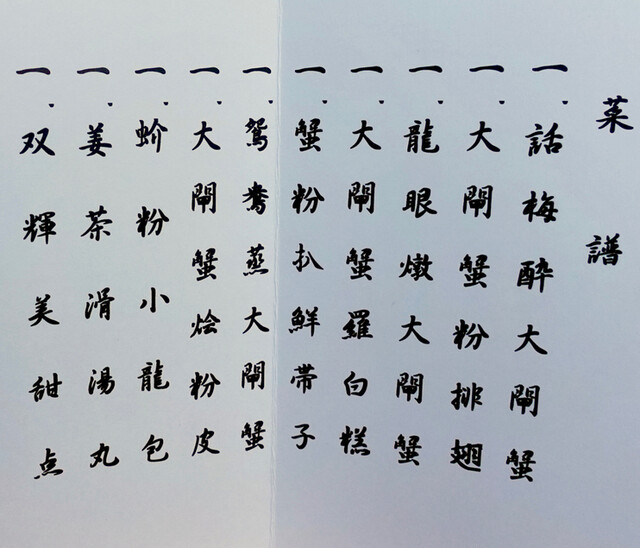 菜譜
一.話梅醉大閘蟹
一.大閘蟹粉排翅
一.龍眼燉大閘蟹
一.大閘蟹羅白糕
一.蟹粉扒鮮帶子
一.鴛鴦蒸大閘蟹
一.大閘蟹烩粉皮
一.蚧粉小龍包
一.姜茶滑湯丸
一.双輝美甜点